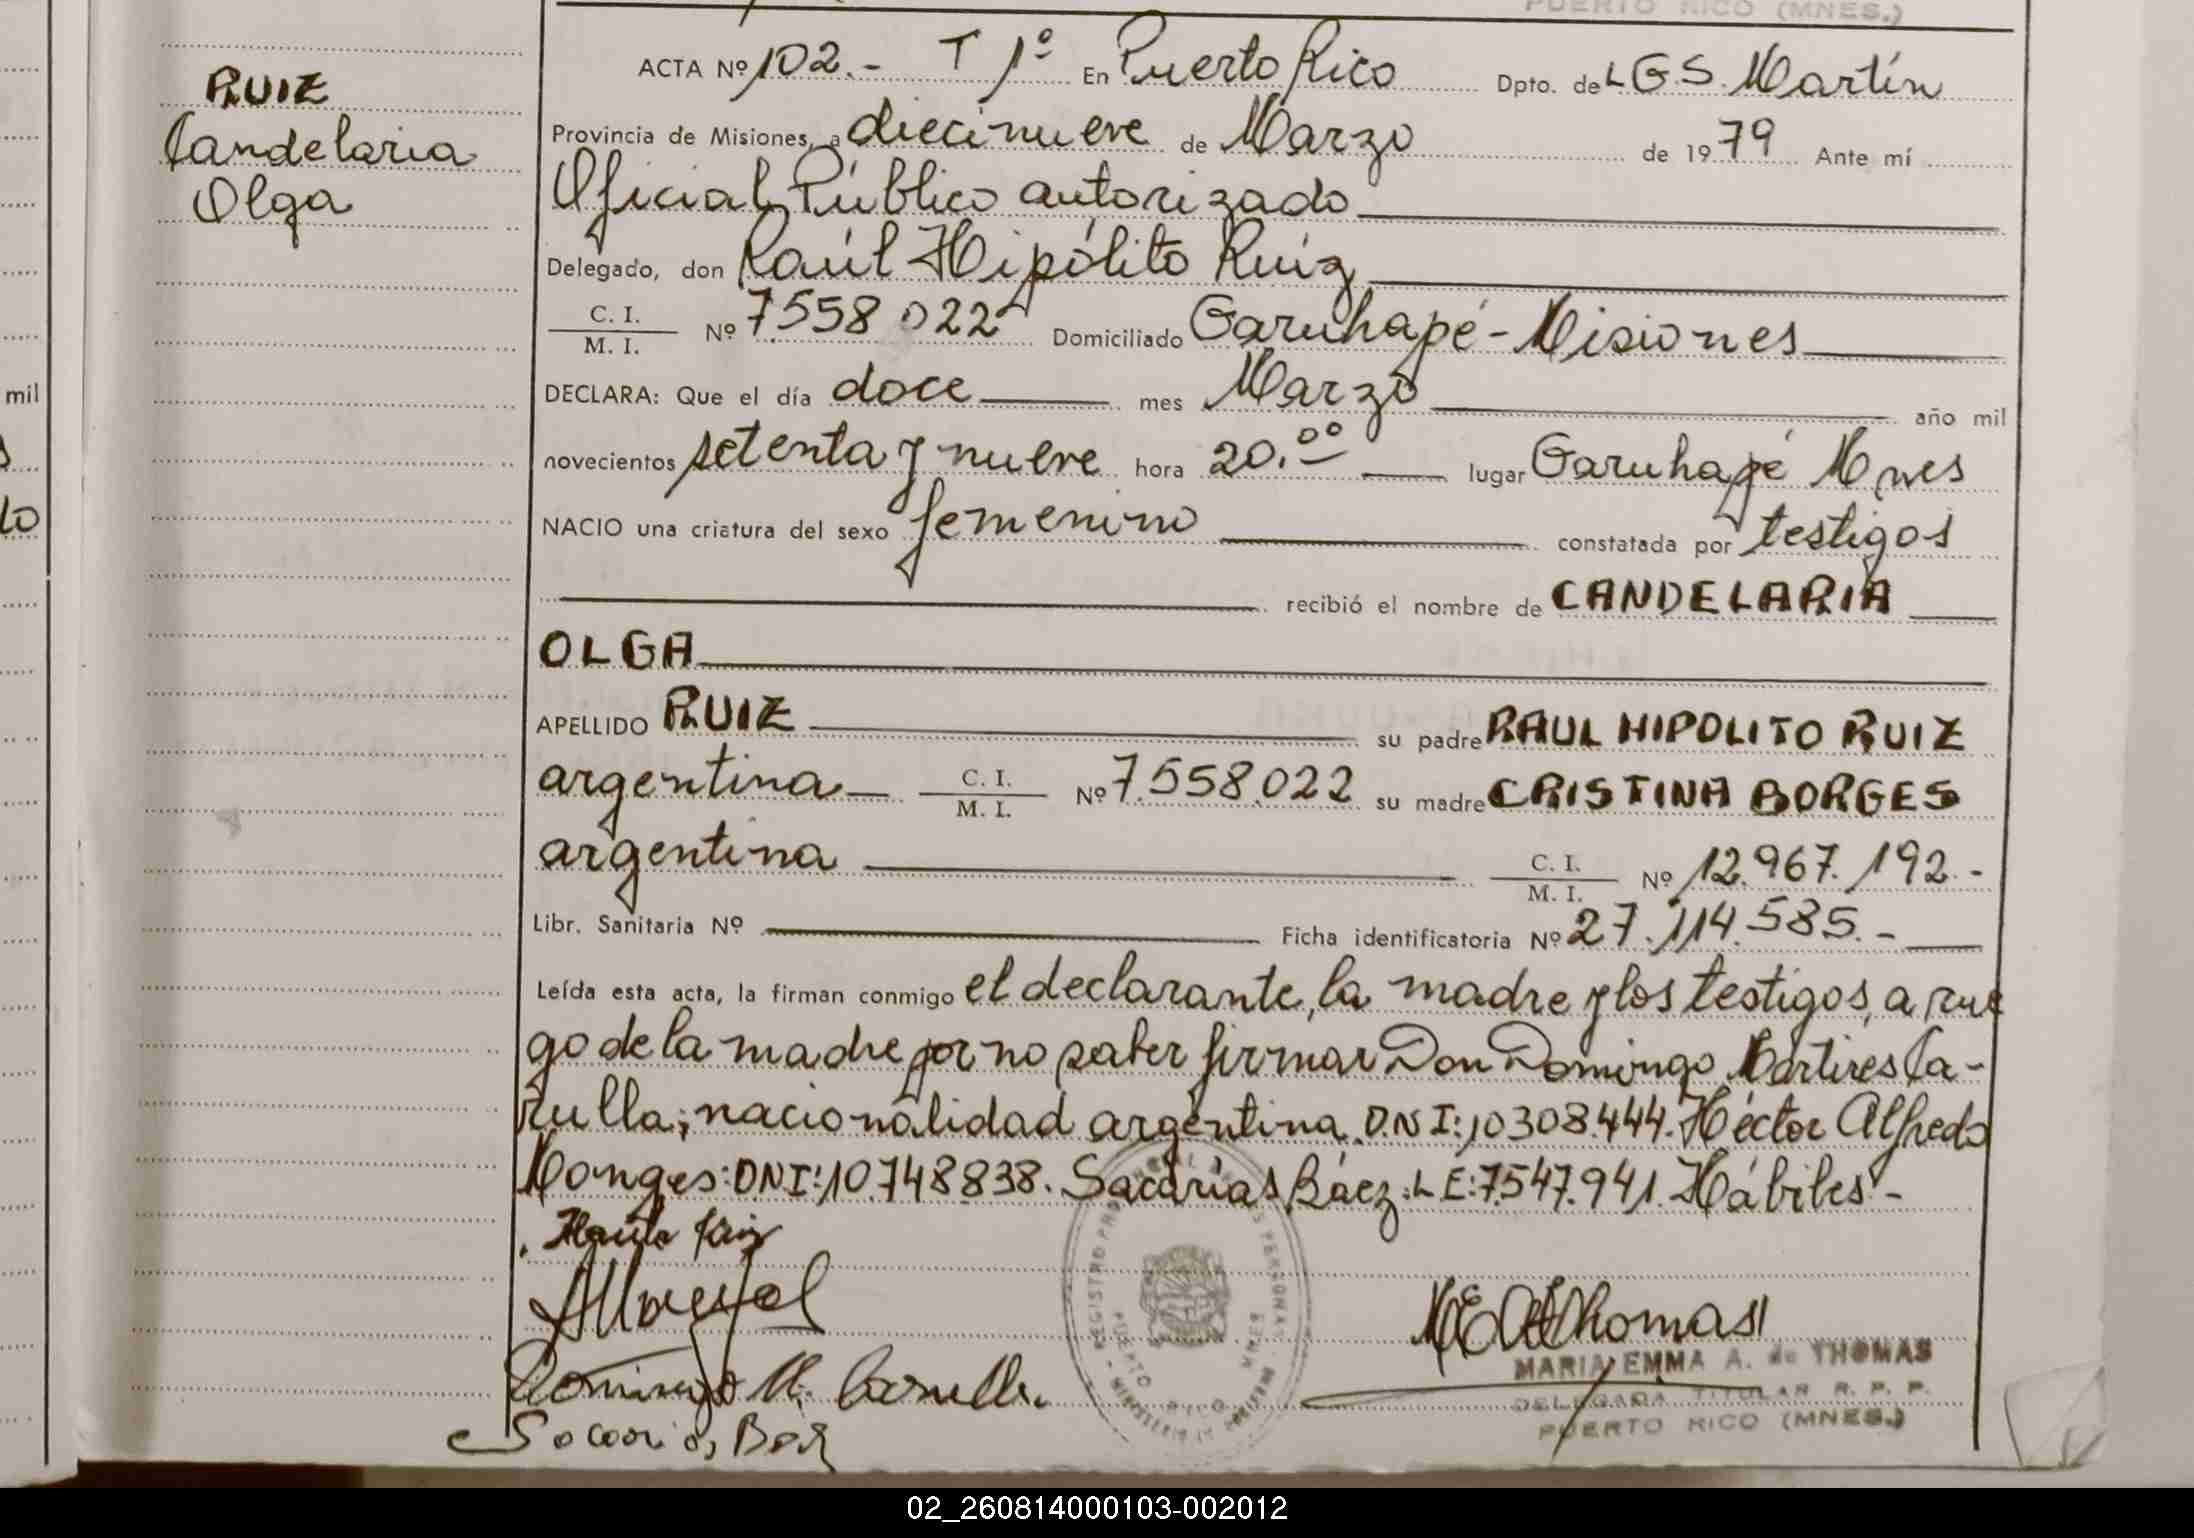 PUERTO RICO (MNES.)
RUIZ
Candelaria
Olga
mil
ACTA Nº 102.- T 1º En Puerto Rico Dpto. de L G.S. Martín
Provincia de Misiones, a diecinueve de Marzo de 1979 Ante mí
Oficial Público autorizado
Delegado, don Raúl Hipólito Ruíz
C. I.
M. I. Nº 7558.022 Domiciliado Garuhapé-Misiones
DECLARA: Que el día doce mes Marzo año mil
novecientos setenta y nueve hora 20.00 lugar Garuhapé Mnes
NACIO una criatura del sexo femenino constatada por testigos
recibió el nombre de CANDELARIA
OLGA
APELLIDO RUIZ su padre RAUL HIPOLITO RUIZ
argentina C. I.
M. I. Nº 7.558.022 su madre CRISTINA BORGES
argentina C. I.
M. I. Nº 12.967.192.-
Libr. Sanitaria Nº Ficha identificatoria Nº 27.114.585.-
Leída esta acta, la firman conmigo el declarante, la madre y los testigos, a rue
go de la madre por no saber firmar Don Domingo Mártires Ca-
rulla; nacionalidad argentina. D.N I: 10308.444. Héctor Alfredo
Monges: DNI: 10.748838. Sacarías Báez: L E: 7.547.941. Hábiles.-
Domingo M. Carulla
M E A de Thomas
MARIA EMMA A. de THOMAS
DELEGADA TITULAR R. P. P.
PUERTO RICO (MNES.)
02_260814000103-002012